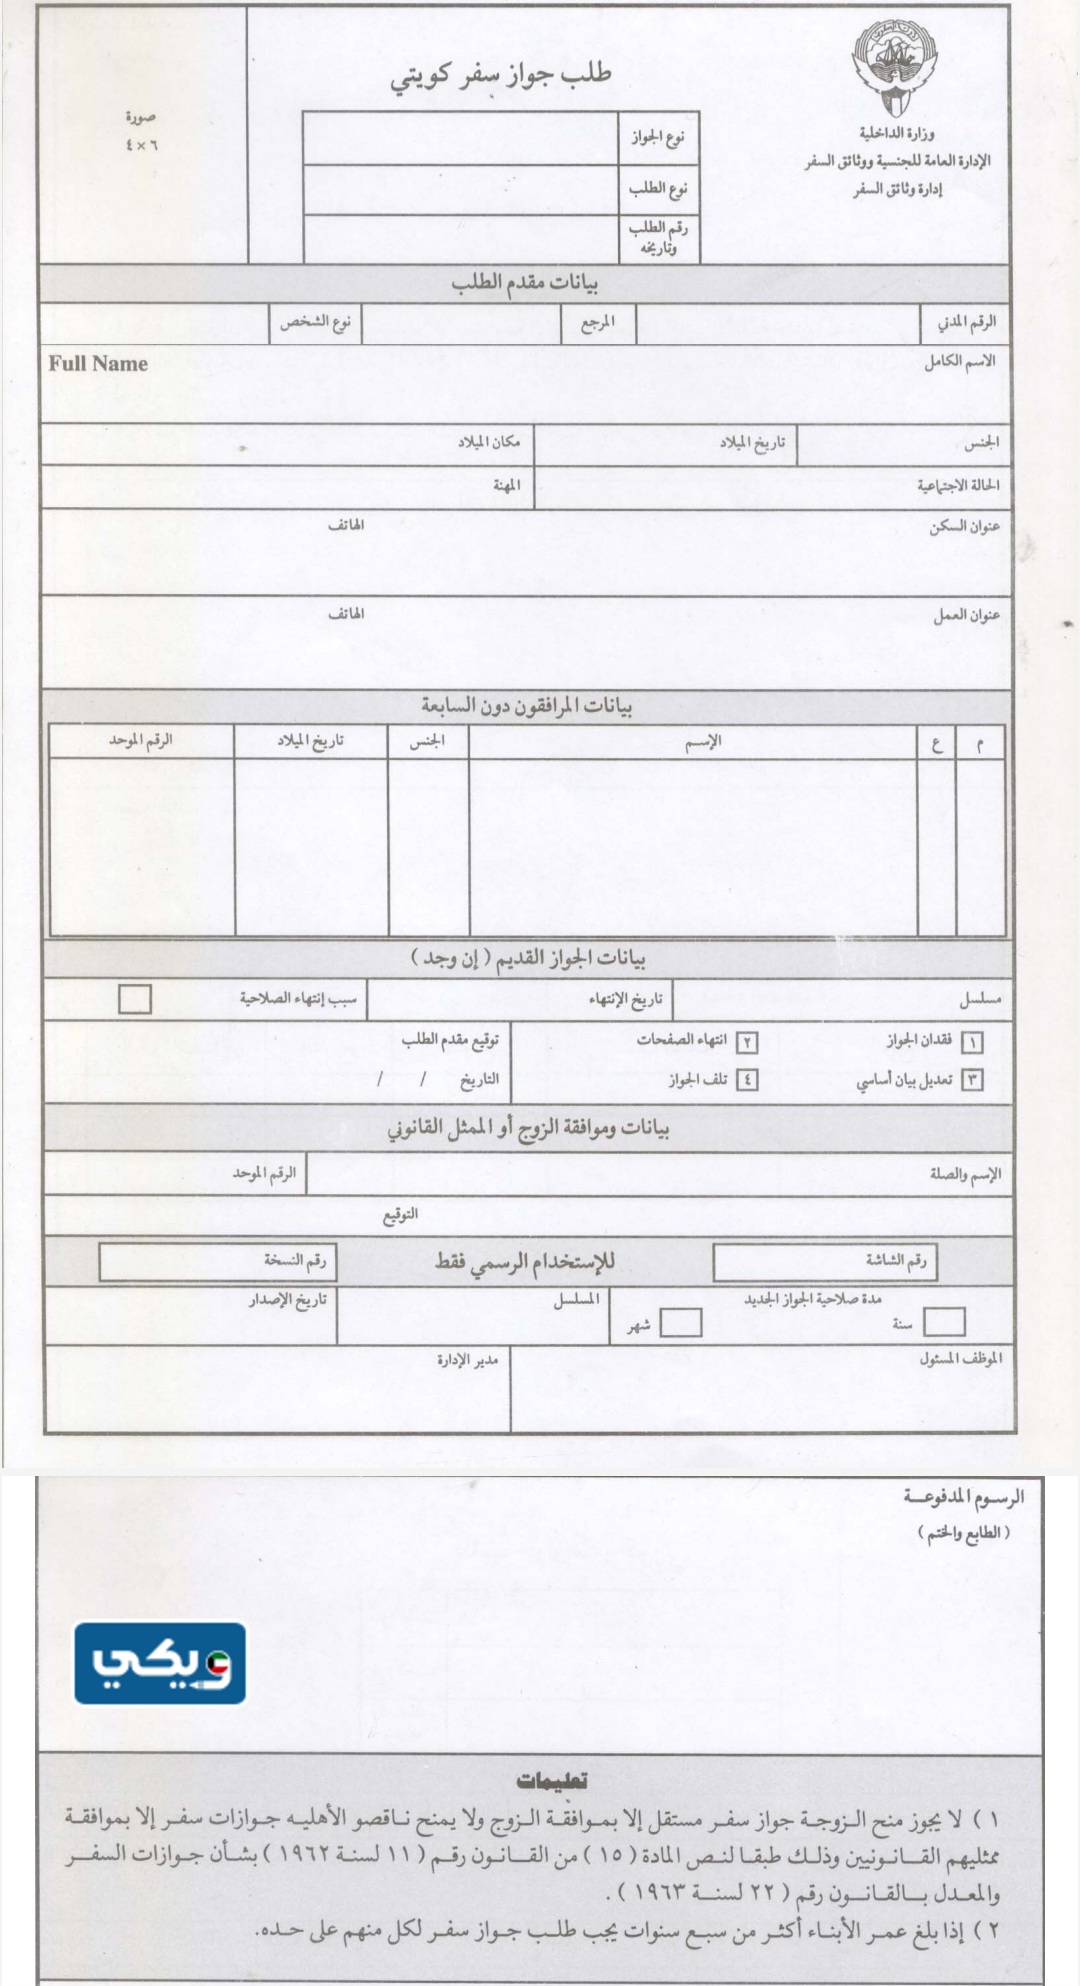 وزارة الداخلية
الإدارة العامة للجنسية ووثائق السفر
إدارة وثائق السفر
طلب جواز سفر كويتي
نوع الجواز
نوع الطلب
رقم الطلب
وتاريخه
صورة
٦ × ٤
بيانات مقدم الطلب
الرقم المدني المرجع نوع الشخص
الاسم الكامل Full Name
الجنس تاريخ الميلاد مكان الميلاد
الحالة الاجتماعية المهنة
عنوان السكن الهاتف
عنوان العمل الهاتف
بيانات المرافقون دون السابعة
م ع الإسم الجنس تاريخ الميلاد الرقم الموحد
بيانات الجواز القديم ( إن وجد )
مسلسل تاريخ الإنتهاء سبب إنتهاء الصلاحية
١ فقدان الجواز ٢ انتهاء الصفحات توقيع مقدم الطلب
٣ تعديل بيان أساسي ٤ تلف الجواز التاريخ / /
بيانات وموافقة الزوج أو الممثل القانوني
الإسم والصلة الرقم الموحد
التوقيع
رقم الشاشة للإستخدام الرسمي فقط رقم النسخة
مدة صلاحية الجواز الجديد المسلسل تاريخ الإصدار
سنة شهر
الموظف المسئول مدير الإدارة
الرسوم المدفوعة
( الطابع والختم )
ويكي
تعليمات
١ ) لا يجوز منح الزوجة جواز سفر مستقل إلا بموافقة الزوج ولا يمنح ناقصو الأهليه جوازات سفر إلا بموافقة
ممثليهم القانونيين وذلك طبقا لنص المادة ( ١٥ ) من القانون رقم ( ١١ لسنة ١٩٦٢ ) بشأن جوازات السفر
والمعدل بالقانون رقم ( ٢٢ لسنة ١٩٦٣ ) .
٢ ) إذا بلغ عمر الأبناء أكثر من سبع سنوات يجب طلب جواز سفر لكل منهم على حده.